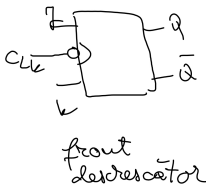 J
Q
CLK
Q̅
K
front
descrescător